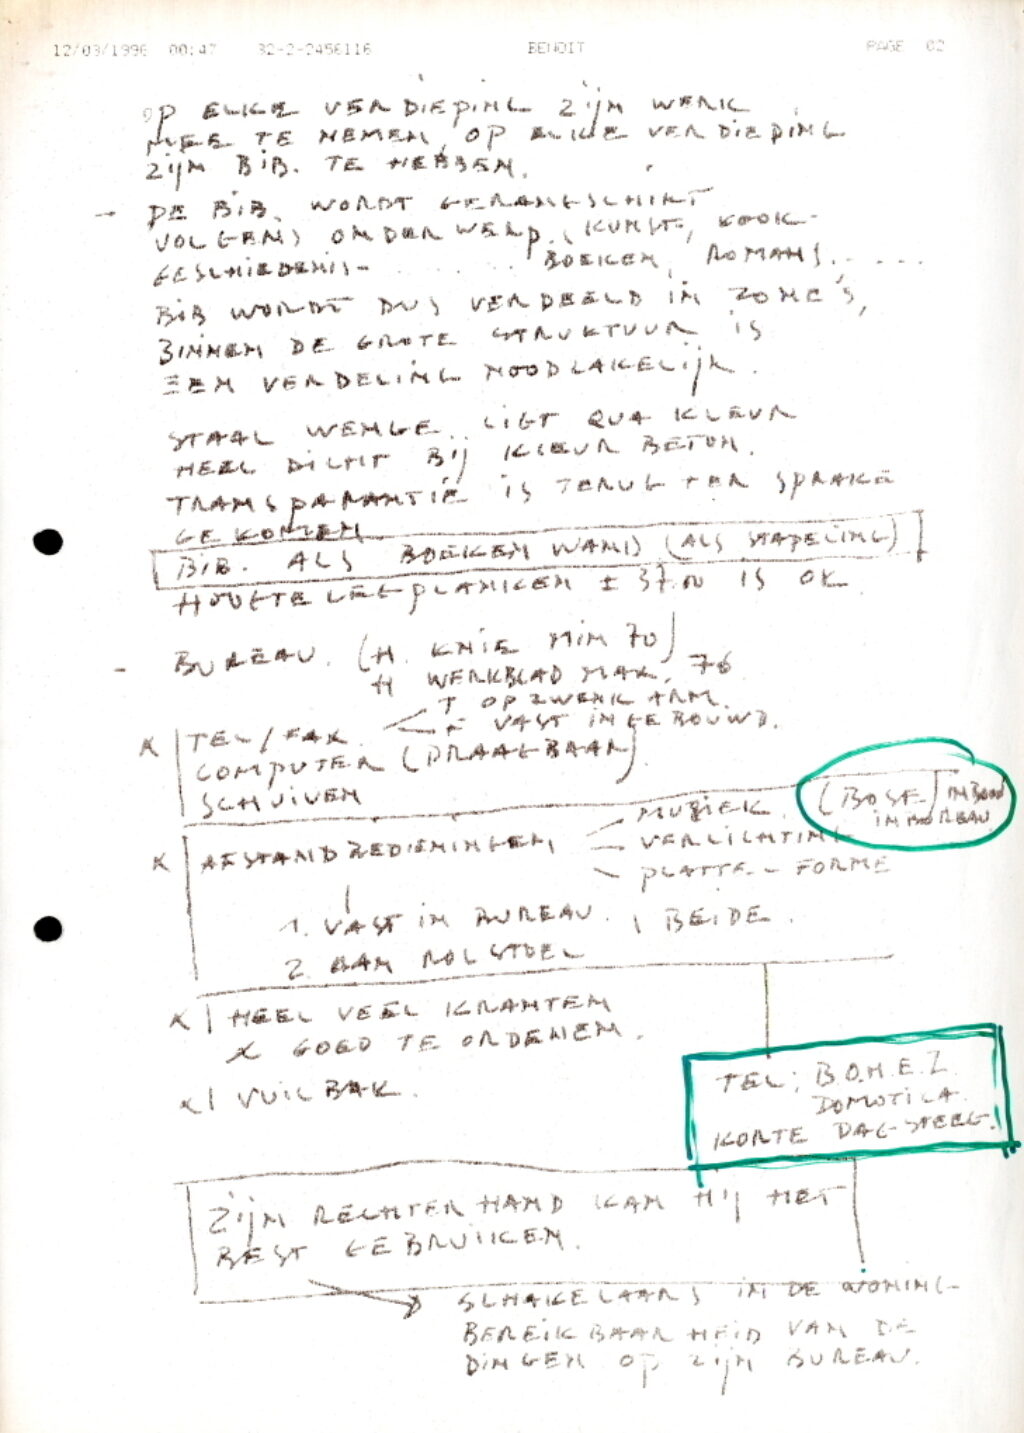 12/03/1996 00:47 32-2-2456116 BENOIT PAGE 02
OP ELKE VERDIEPING ZIJN WERK
MEE TE NEMEN, OP ELKE VERDIEPING
ZIJN BIB. TE HEBBEN.
→ DE BIB. WORDT GERANGSCHIKT
VOLGENS ONDERWERP, KUNST-, KOOK-
GESCHIEDENIS- ........ BOEKEN, ROMANS......
BIB WORDT DUS VERDEELD IN ZONE'S,
BINNEN DE GROTE STRUKTUUR IS
EEN VERDELING NOODZAKELIJK.
STAAL WENGE.. LIGT QUA KLEUR
HEEL DICHT BIJ KLEUR BETON.
TRANSPARANTIE IS TERUG TER SPRAKE
GEKOMEN
BIB. ALS BOEKEN WAND (ALS STAPELING)
HOOGTE LEGPLANKEN ± 37. IS OK
- BUREAU. (H. KNIE MIN 70)
H WERKBLAD MAX. 76
T OP ZWENK ARM.
X TEL/FAX. F VAST INGEBOUWD.
COMPUTER (DRAAGBAAR)
SCHUIVEN
MUZIEK. (BOSE) INBOUW
IN BUREAU
X AFSTANDBEDIENINGEN VERLICHTING
PLATTE-FORME
1. VAST IN BUREAU. BEIDE.
2. AAN ROLSTOEL
X HEEL VEEL KRANTEN
X GOED TE ORDENEN.
X VUILBAK.
TEL; B.O.H.E.Z.
DOMOTICA.
KORTE DAGSTEEG.
ZIJN RECHTERHAND KAN HIJ HET
BEST GEBRUIKEN.
SCHAKELAARS IN DE WONING-
BEREIKBAARHEID VAN DE
DINGEN OP ZIJN BUREAU.